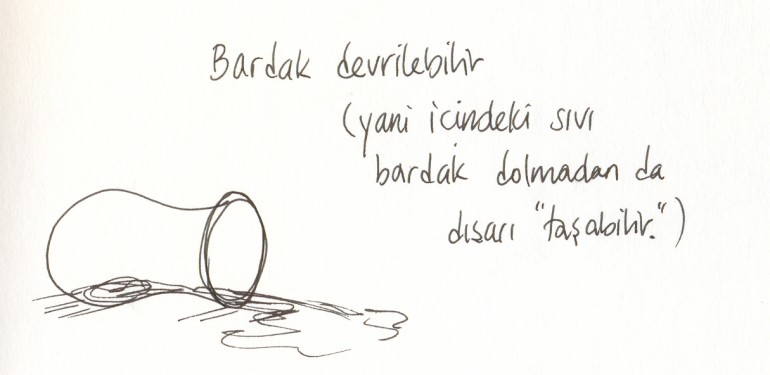 Bardak devrilebilir
(yani içindeki sıvı
bardak dolmadan da
dışarı "taşabilir.")